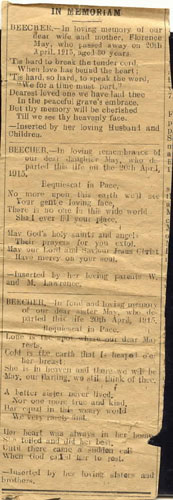 IN MEMORIAM.
BEECHER.—In loving memory of our
dear wife and mother, Florence
May, who passed away on 20th
April, 1915, aged 30 years.
'Tis hard to break the tender cord,
When love has bound the heart;
'Tis hard, so hard, to speak the word,
"We for a time must part."
Dearest loved one we have laid thee
In the peaceful grave's embrace.
But thy memory will be cherished
Till we see thy heavenly face.
—Inserted by her loving Husband and
Children.
BEECHER.—In loving remembrance of
our dear daughter May, who de-
parted this life on the 20th April,
1915.
Requiescat in Pace.
No more upon this earth we'll see
Your gentle loving face,
There is no one in this wide world
Shall ever fill your place.
May God's holy saints and angels
Their prayers for you extol.
May our Lord and Saviour Jesus Christ
Have mercy on your soul.
—Inserted by her loving parents W.
and M. Lawrence.
BEECHER.—In fond and loving memory
of our dear sister May, who de-
parted this life 20th April, 1915.
Requiescat in Pace.
is the spot where our dear May
rests,
Cold is the earth that is heaped o'er
her breast;
She is in heaven and there we will be
May, our darling, we still think of thee.
A better sister never lived,
Nor one more true and kind,
Her equal in this weary world
We very rarely find.
Her heart was always in her home,
She toiled and did her best,
Until there came a sudden call
When God called her to rest.
—Inserted by her loving sisters and
brothers.